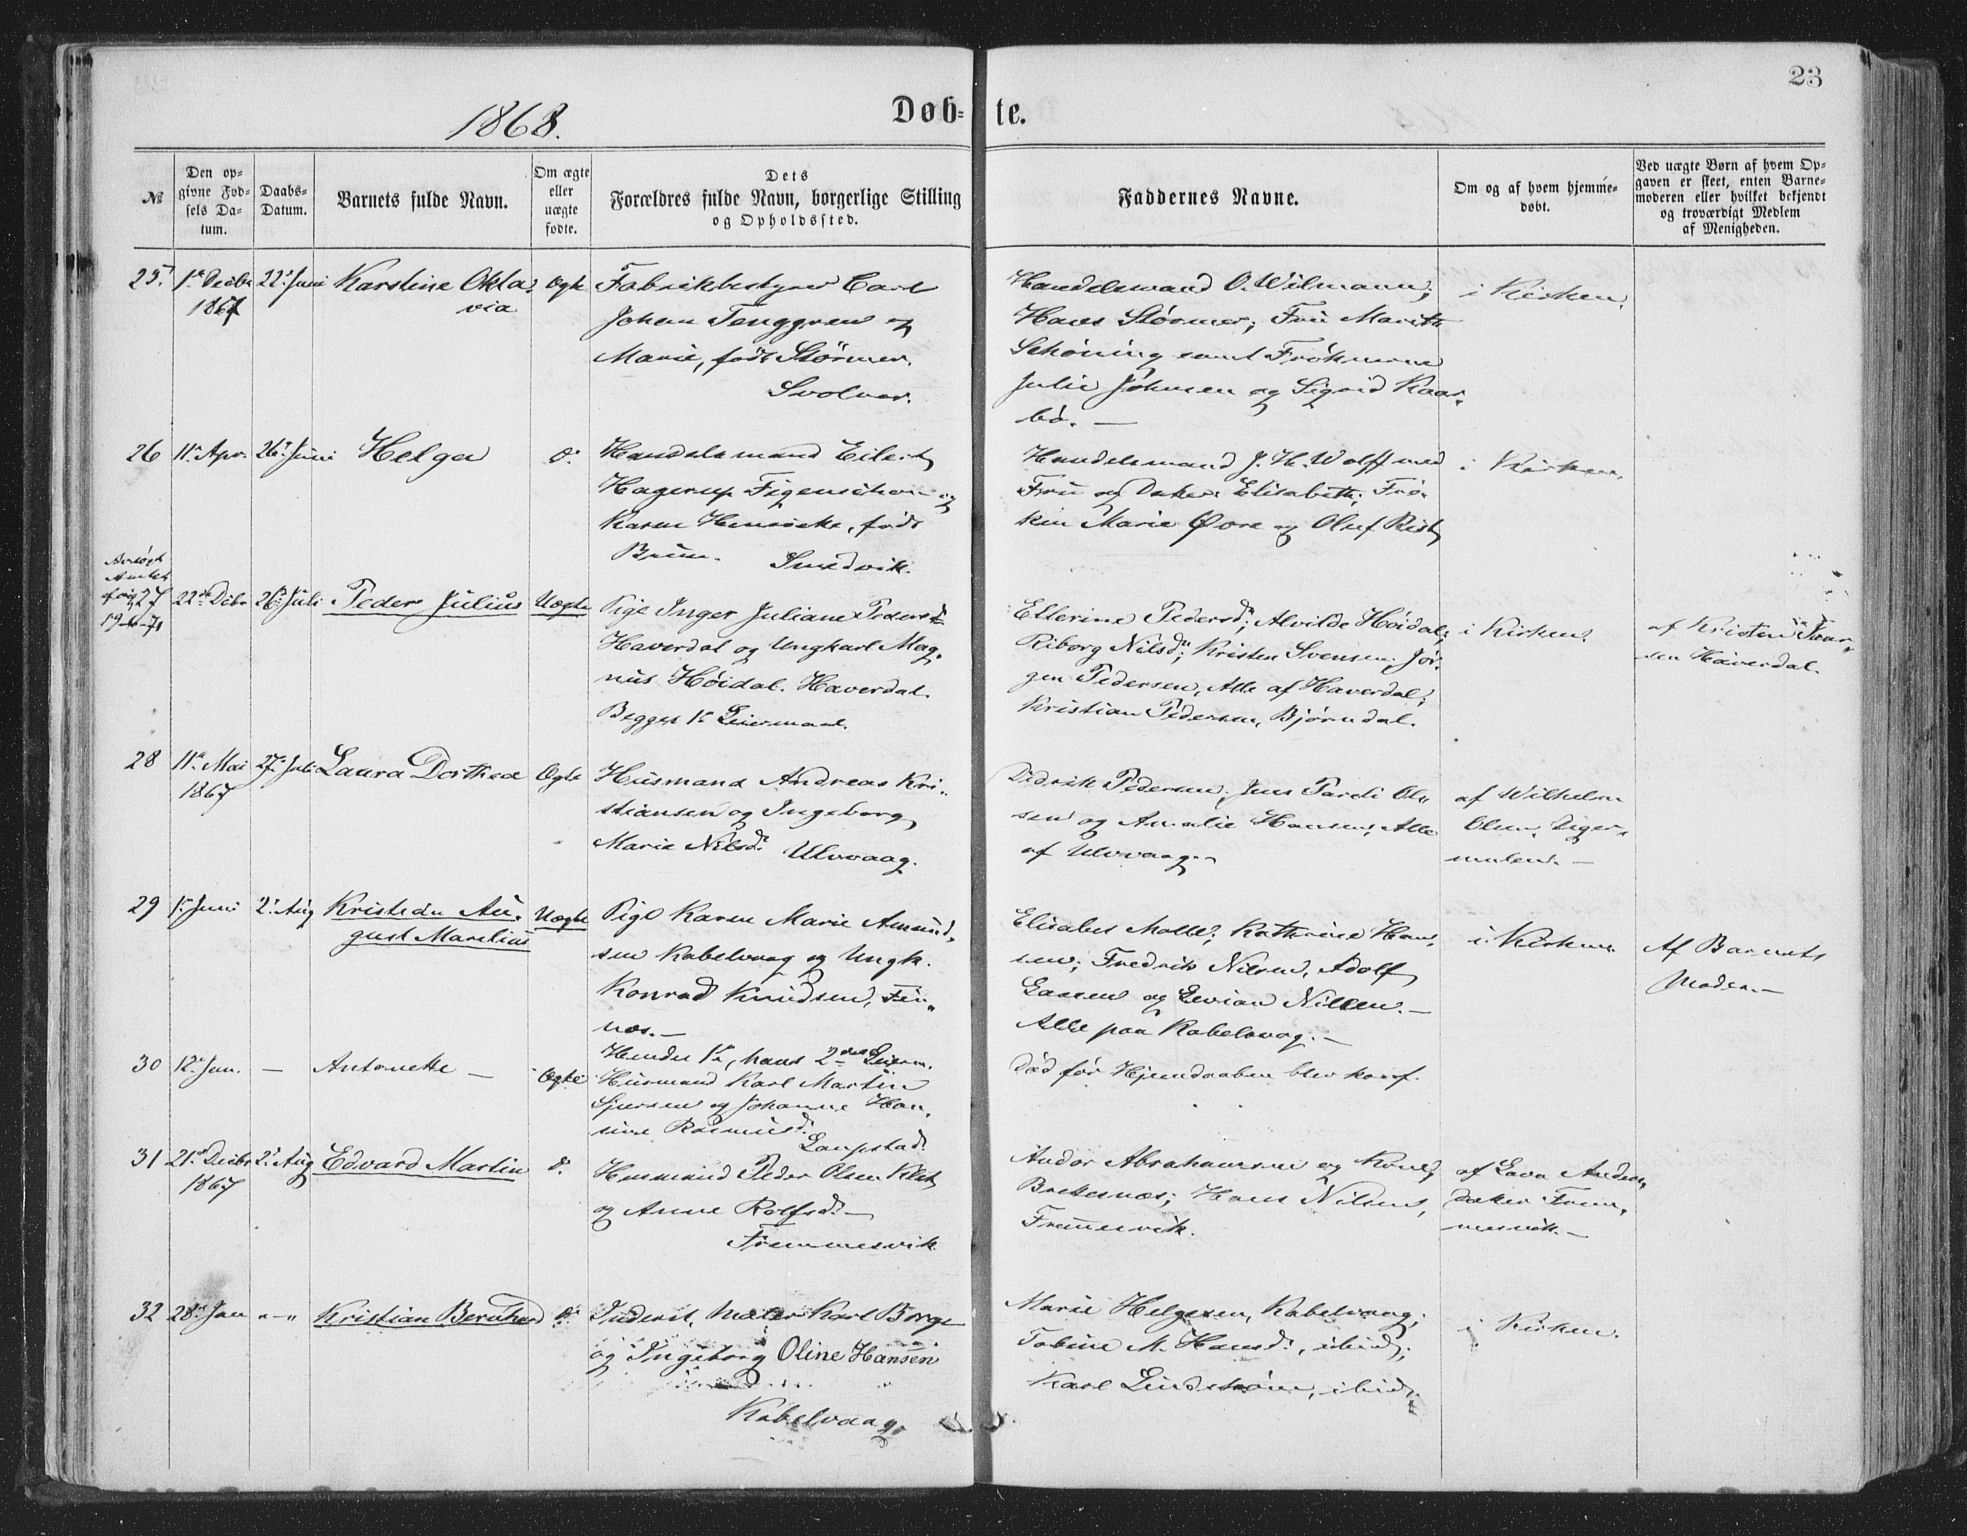 23
1868.
Døb-te.
№
Den op-
givne Fød-
sels Da-
tum.
Daabs-
Datum.
Barnets fulde Navn.
Om ægte
eller
uægte
fødte.
Dets
Forældres fulde Navn, borgerlige Stilling
og Opholdssted.
Faddernes Navne.
Om og af hvem hjemme-
døbt.
Ved uægte Børn af hvem Op-
gaven er skeet, enten Barne-
moderen eller hvilket bekjendt
og troværdigt Medlem
af Menigheden.
25. 1ste Decbr 1867 22. Juni Karstine Okta-
via
Ægte
Fabrikbestyrer Carl
Johan Tenggren og
Marie, født Størmer.
Svolvær.
Handelsmand O. Wilmann;
Hans Størmer; Fru Marith
Schøning samt Frøknerne
Julie Johnsen og Sigrid Kaar-
bø. —
i Kirken.
26 11. Apr. 26. Juni Helga
d.
Handelsmand Eilert
Hagerup Figenschou og
Karen Henrikke, født
Bruun. Smedvik.
Handelsmand J. H. Wolff med
Fru og Datter Elisabeth; Frø-
ken Marie Øvre og Oluf Rist
i Kirken.
27 22. Dcbr 26. Juli Peder Julius
Uægte
Pige Inger Juliane Pedersd.
Haverdal og Ungkarl Mag-
nus Høidal. Haverdal.
Begges 1ste Leiermaal.
Ellerine Pedersd; Alvilde Høidal;
Riborg Nilsd; Kristen Svensen; Jør-
gen Pedersen, Alle af Haverdal;
Kristian Pedersen, Bjørndal.
i Kirken.
af Kristen Ivar-
sen Haverdal.
28 11. Mai 1867 27. Juli Laura Dorthea
Ægte
Husmand Andreas Kri-
stiansen og Ingeborg
Marie Nilsd. Ulvvaag.
Didrik Pedersen; Jens Pareli Ol-
sen og Amalie Hansen, Alle
af Ulvvaag.
af Wilhelm
Olsen, Diger-
mulen. —
29 1. Juni 2. Aug Kristian Au-
gust Marelius
Uægte
Pige Karen Marie Amund-
sen Kabelvaag og Ungk.
Konrad Knudsen, Fin-
nes. —
Hendes 1ste, hans 2det Leierm.
Elisabet Molle; Kathrine Han-
sen; Fredrik Nilsen, Adolf
Larsen og Levian Nilsen. —
Alle paa Kabelvaag. —
i Kirken.
Af Barnets
Moder. —
30 12. Jan. — Antonette —
Ægte
Husmand Karl Martin
Sjursen og Johanne Han-
sine Rasmusd.
Laupstad.
Død før Hjemdaaben blev konf.
31 21. Decbr 1867 2. Aug Edvard Martin
d.
Husmand Peder Olsen Klet
og Anne Rolfsd. —
Fremmesvik
Andor Abrahamsen og Kone,
Brekesnæs; Hans Nilsen,
Fremmesvik.
af Lava Anders-
datter Frem-
mesvik. —
32 28. Jan „—„ Kristian Bernhard
d.
Inderst, Maler Karl Borge
og Ingeborg Oline Hansen
Kabelvaag.
Marie Helgesen, Kabelvaag;
Tobine M. Hansd., ibid;
Karl Lindstrøm, ibid.
i Kirken.